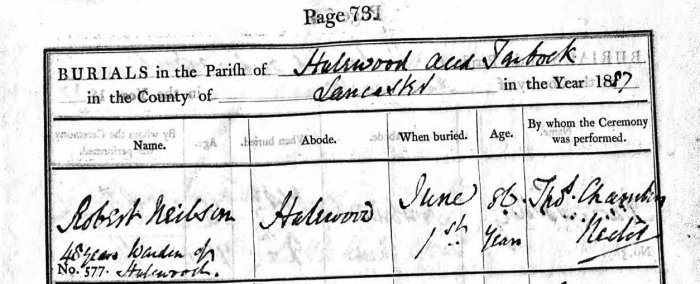 Page 73.
BURIALS in the Parish of Halewood and Tarbock
in the County of Lancaster in the Year 1887
Name. Abode. When buried. Age. By whom the Ceremony was performed.
Robert Neilson Halewood June 1st 86 Years Thos.
48 years Warden of
No. 577. Halewood.